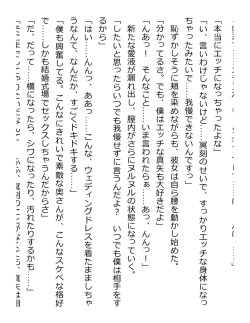 「本当にエッチになっちゃったよな」
「い、言いわけじゃないけど……冥刻のせいで、すっかりエッチな身体になっ
ちゃったみたいで……我慢できないんですっ」
恥ずかしそうに頬を染めながらも、彼女は自ら腰を動かし始めた。
「分かってるさ。でも、僕はエッチな真矢も大好きだよ」
「んあっ！　そんなこと……いま言われたらぁ……あっ、んんっ！」
新たな愛液が漏れ出し、膣内がさらにヌルヌルの状態になっていく。
「したいと思ったらいつでも我慢せずに言うんだよ？　いつでも僕は相手をす
るから」
「はい……んんっ、ああっ……こんな、ウェディングドレスを着たまましちゃ
うなんて、なんだか、すごくドキドキする……」
「僕も興奮してる。こんなにきれいで素敵な奥さんが、こんなスケベな格好
で……しかも結婚式場でセックスしちゃうんだからさ」
「だ、だって……横になったら、シワになったり、汚れたりするかも……」